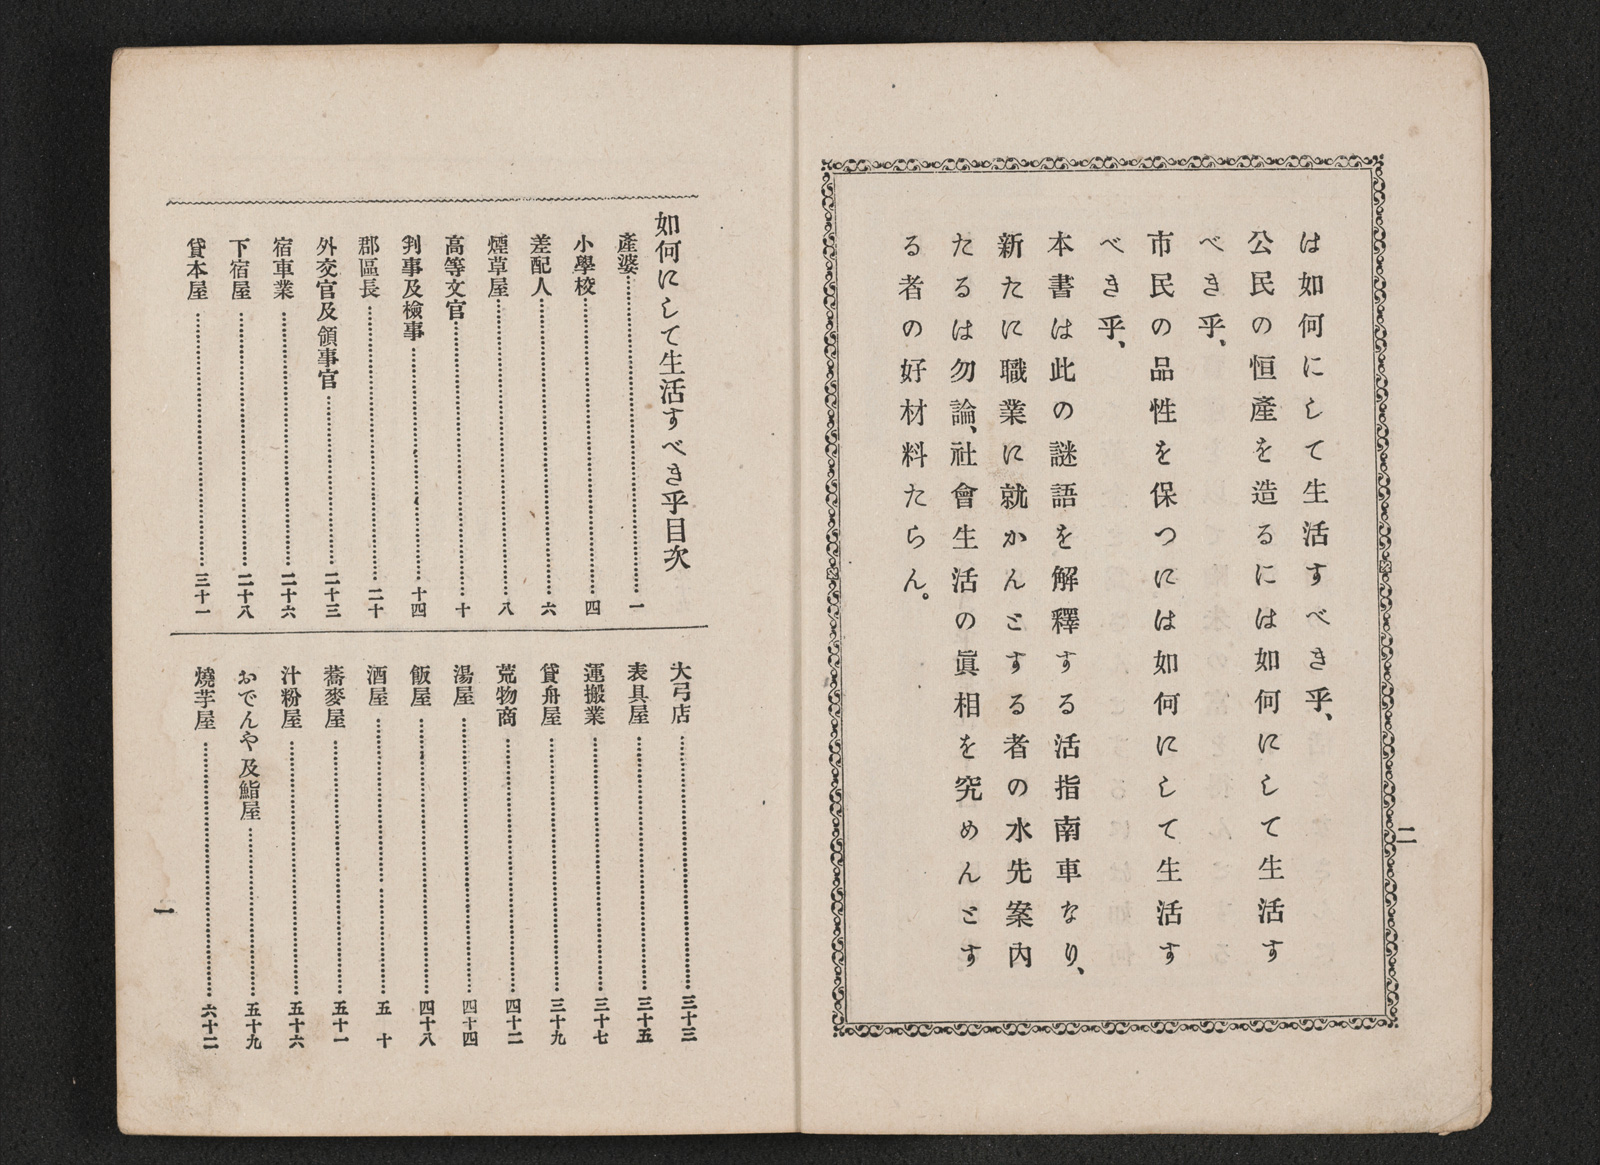 は如何にして生活すべき乎、
公民の恒產を造るには如何にして生活す
べき乎、
市民の品性を保つには如何にして生活す
べき乎、
本書は此の謎語を解釋する活指南車なり、
新たに職業に就かんとする者の水先案內
たるは勿論、社會生活の眞相を究めんとす
る者の好材料たらん。
二
如何にして生活すべき乎目次
產婆……一
小學校……四
差配人……六
煙草屋……八
高等文官……十
判事及檢事……十四
郡區長……二十
外交官及領事官……二十三
宿車業……二十六
下宿屋……二十八
貸本屋……三十一
大弓店……三十三
表具屋……三十五
運搬業……三十七
貸舟屋……三十九
荒物商……四十二
湯屋……四十四
飯屋……四十八
酒屋……五十
蕎麥屋……五十一
汁粉屋……五十六
おでんや及鮨屋……五十九
燒芋屋……六十二
一